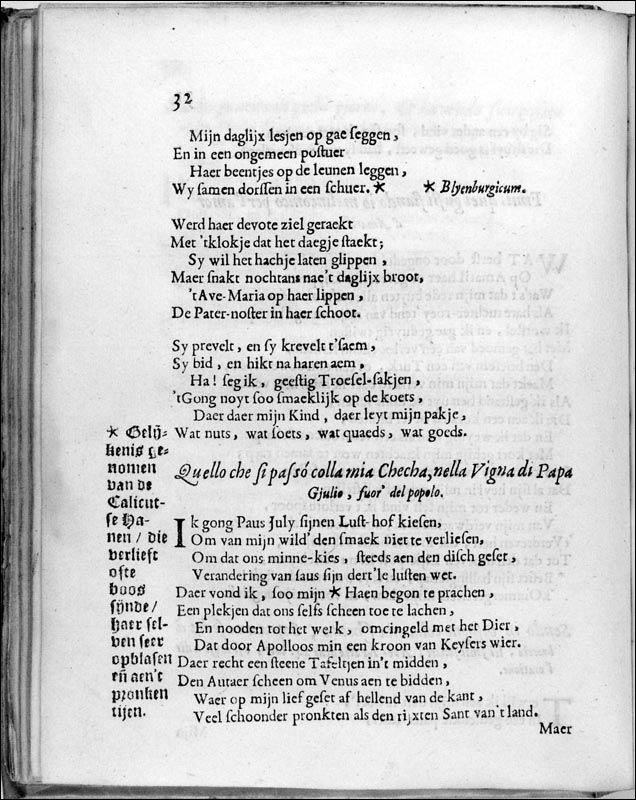 32
Mijn daglijx lesjen op gae seggen,
En in een ongemeen postuer
Haer beentjes op de leunen leggen,
Wy samen dorssen in een schuer. * * Blyenburgicum.
Werd haer devote ziel geraekt
Met 'tklokje dat het daegje staekt;
Sy wil het hachje laten glippen,
Maer snakt nochtans nae't daglijx broot,
'tAve-Maria op haer lippen,
De Pater-noster in haer schoot.
Sy prevelt, en sy krevelt t'saem,
Sy bid, en hikt na haren aem,
Ha! seg ik, geestig Troesel-sakjen,
'tGong noyt soo smaeklijk op de koets,
Daer daer mijn Kind, daer leyt mijn pakje,
Wat nuts, wat soets, wat quaeds, wat goeds.
Quello che si passó colla mia Checha, nella Vigna di Papa
Gjulio, fuor' del popolo.
Ik gong Paus July sijnen Lust-hof kiesen,
Om van mijn wild' den smaek niet te verliesen,
Om dat ons minne-kies, steeds aen den disch geset,
Verandering van saus sijn dert'le lusten wet.
Daer vond ik, soo mijn * Haen begon te prachen,
Een plekjen dat ons selfs scheen toe te lachen,
En nooden tot het werk, omcingeld met het Dier,
Dat door Apolloos min een kroon van Keysers wier.
Daer recht een steene Tafeltjen in't midden,
Den Autaer scheen om Venus aen te bidden,
Waer op mijn lief geset af hellend van de kant,
Veel schoonder pronkten als den rijxten Sant van't land.
* Gelij-
kenis ge-
nomen
van de
Calicut-
se Ha-
nen / die
verlieft
ofte
boos
sijnde /
haer sel-
ven seer
opblasen
eñ aen't
pronken
tijen.
Maer